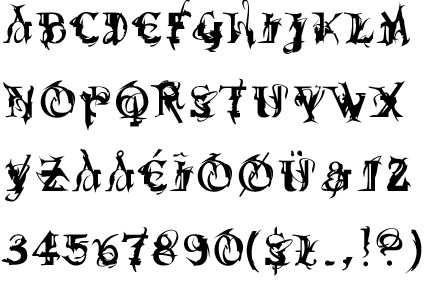 ABCDEFGHIJKLM
NOPQRSTUVWX
YZÀÅÉÎÕØÜ&12
34567890($£.,!?)